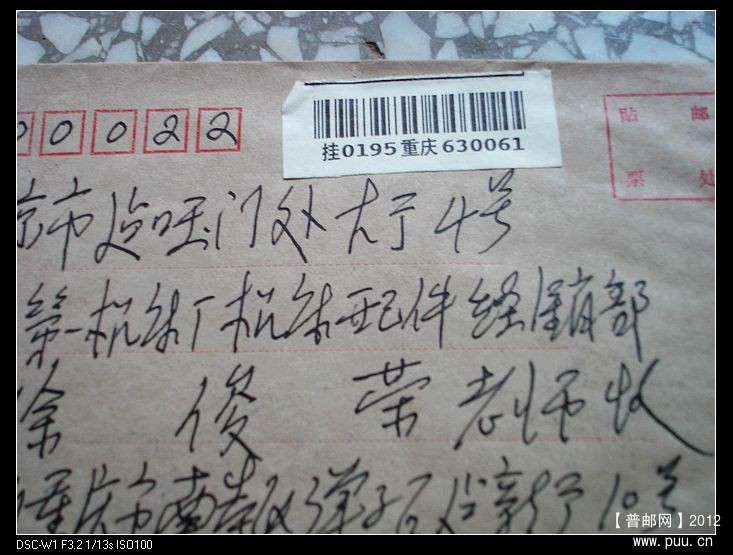 0 0 0 2 2
挂0195 重庆 630061
贴 邮
票 处
京市 门外大 4号
第一机床厂机床配件经销部
徐 俊 荣 老师收
重庆市南 区弹子石 新 10号
【普邮网】2012
www.puu.cn
DSC-W1 F3.2 1/13s ISO100